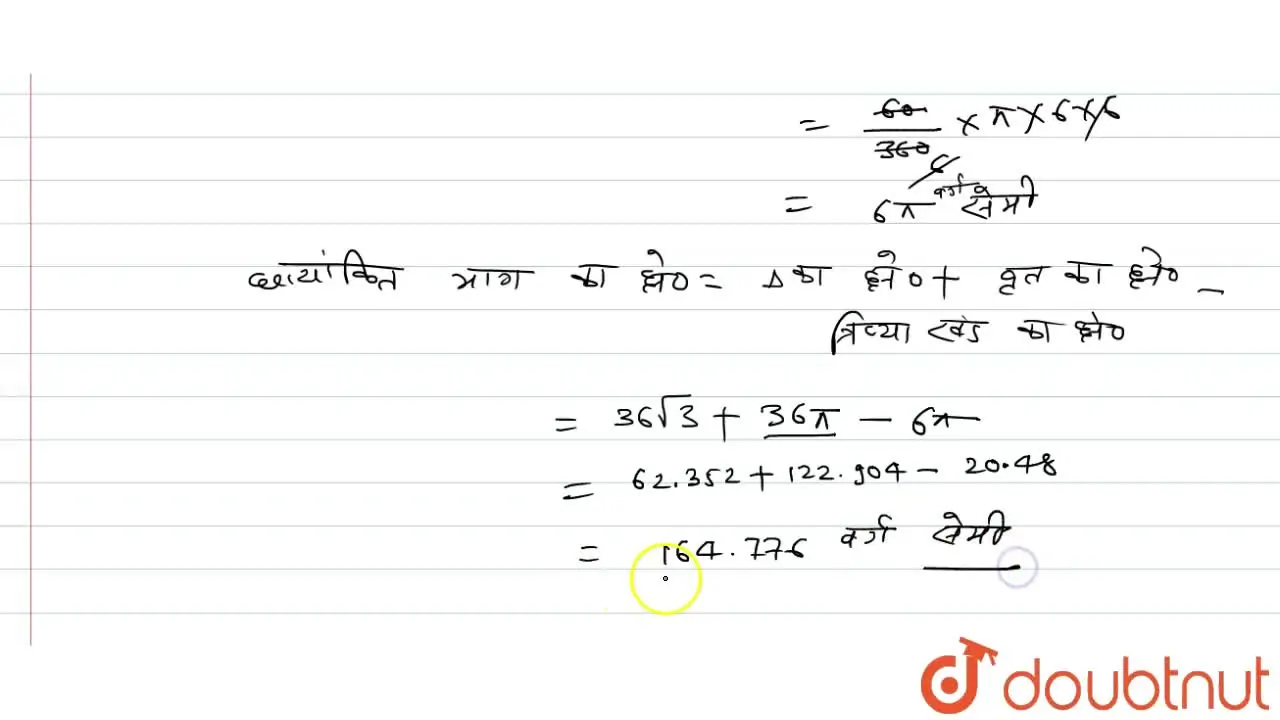 = 60/360 × π × 6 × 6
6
= 6π वर्ग सेमी
छायांकित भाग का क्षे० = Δ का क्षे० + वृत का क्षे० –
त्रिज्या खंड का क्षे०
= 36√3 + 36π – 6π
= 62.352 + 122.904 – 20.48
= 164.776 वर्ग सेमी
doubtnut